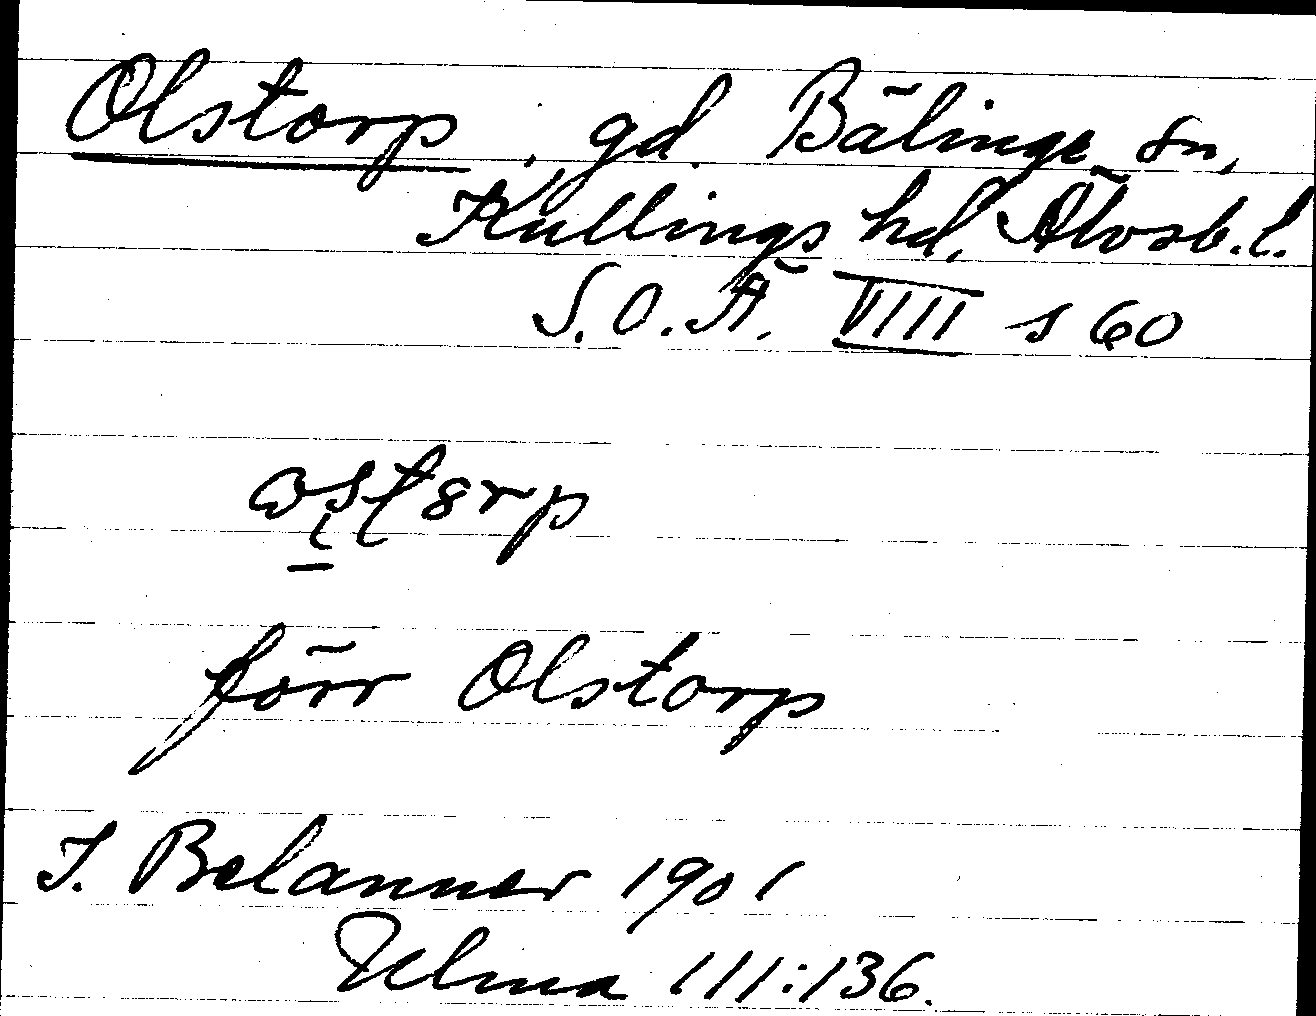 Olstorp, gd. Bälinge sn,
Kullings hd, Älvsb. l.
S.O.Ä. VIII s 60
förr Olstorp
J. Belanner 1901
Ulma 111:136.